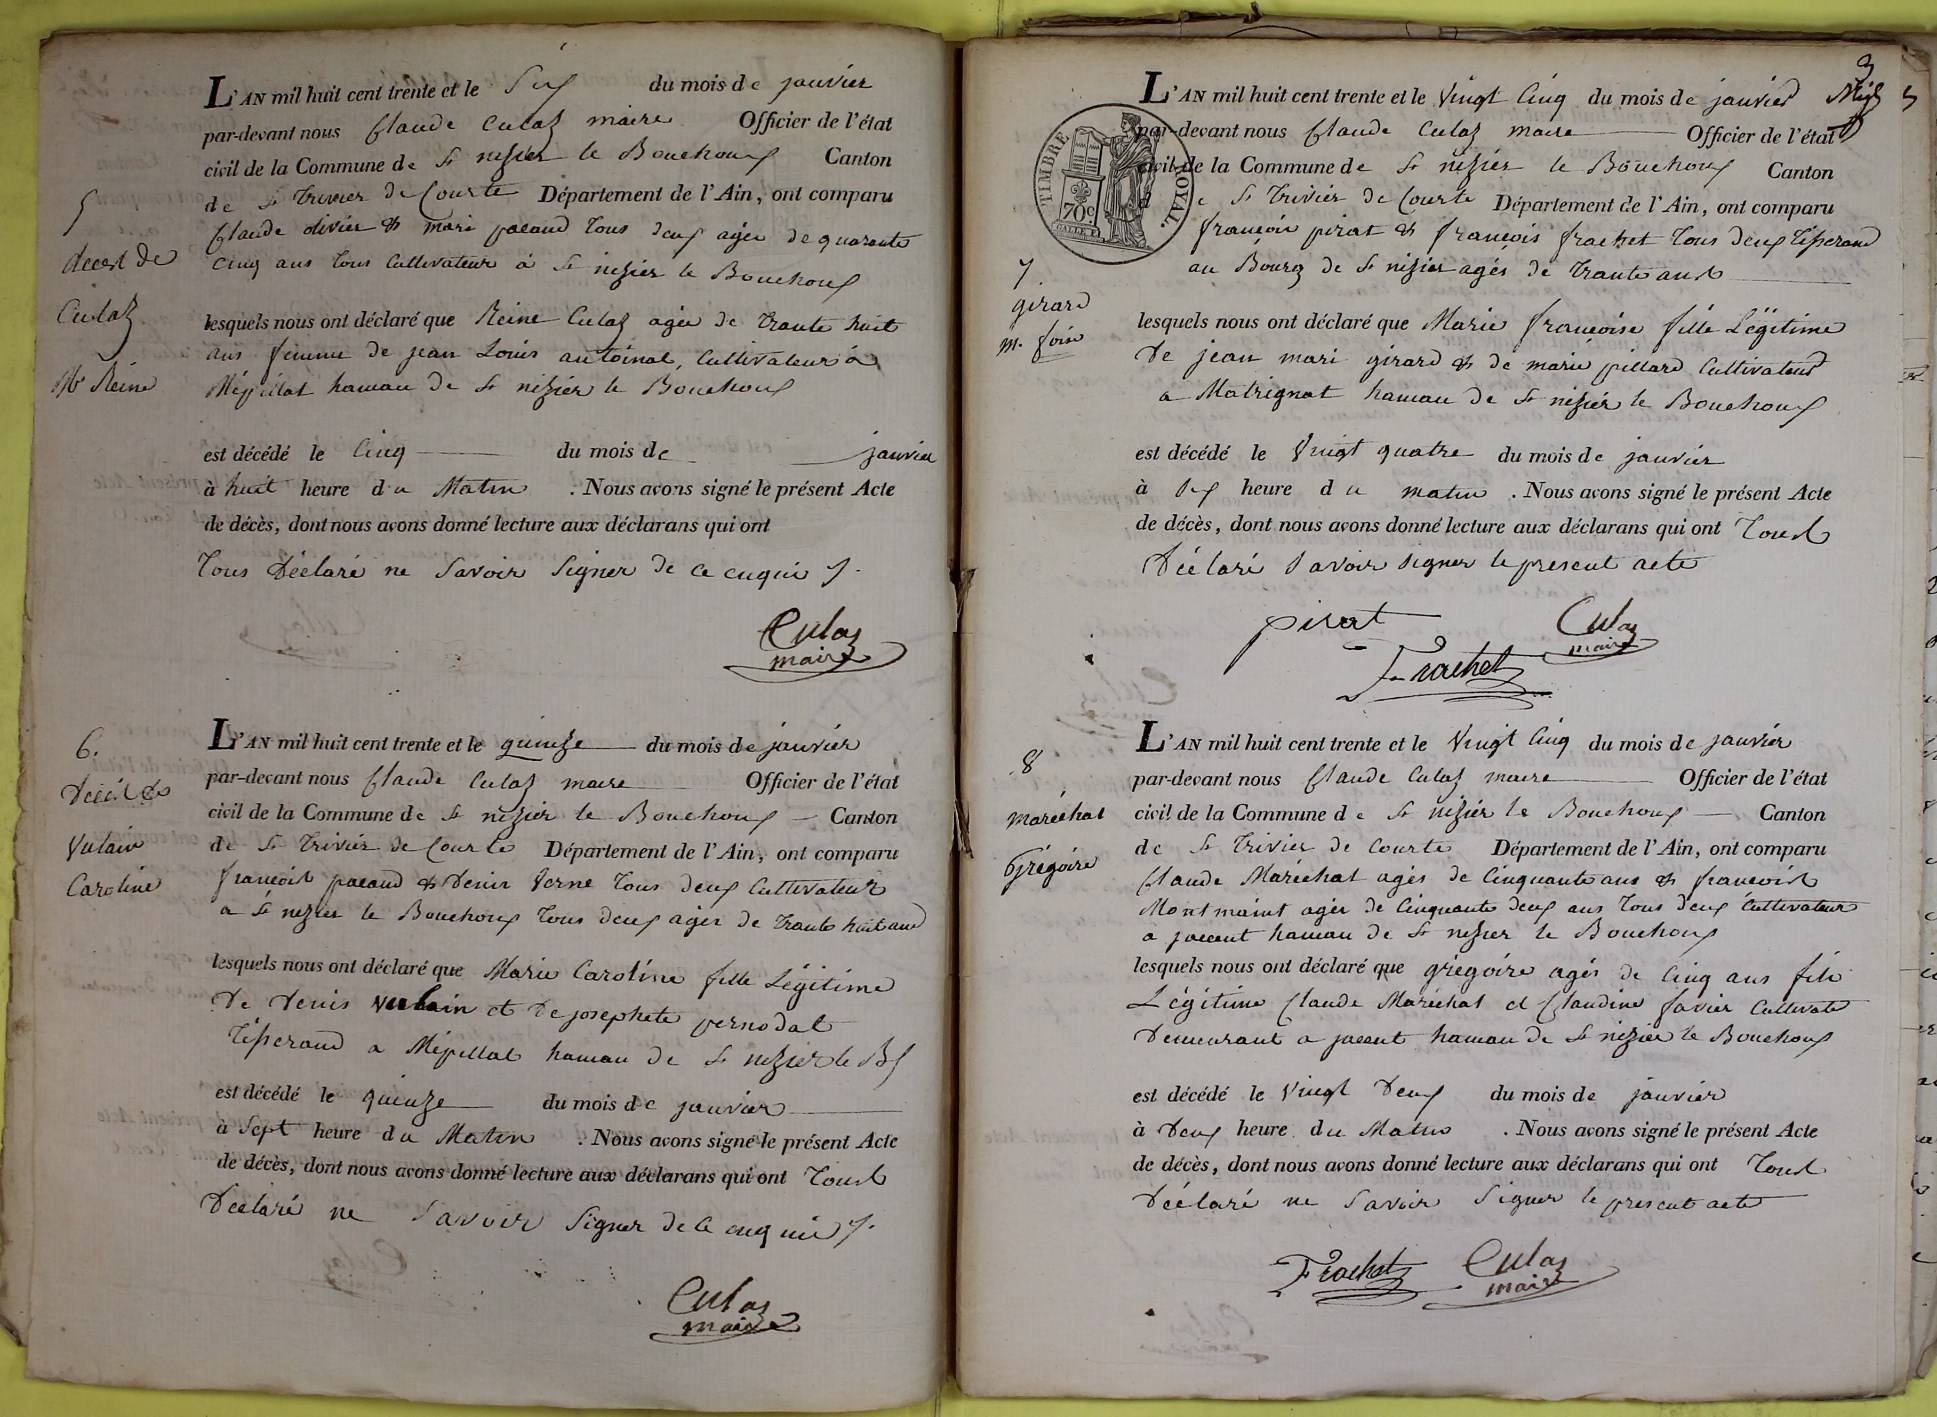 L'AN mil huit cent trente et le Six du mois de janvier
par-devant nous Claude Culaz maire Officier de l'état
civil de la Commune de St nizier le Bouchoux Canton
de St Trivier de Courte Département de l'Ain, ont comparu
Claude olivier & mari pacaud Tous deux agés de quarante
cinq ans tous Cultivateur à St nizier le Bouchoux
lesquels nous ont déclaré que Reine Culaz agée de trante huit
ans femme de jean Louis antoinat, Cultivateur à
Mépillat hameau de St nizier le Bouchoux
est décédé le Cinq du mois de janvier
à huit heure du Matin . Nous avons signé le présent Acte
de décès, dont nous avons donné lecture aux déclarans qui ont
Tous Déclaré ne Savoir Signer de ce enquis
Culaz
maire
5
décest de
Culaz
Reine
L'AN mil huit cent trente et le quinze du mois de janvier
par-devant nous Claude Culaz maire Officier de l'état
civil de la Commune de St nizier le Bouchoux Canton
de St Trivier de Courte Département de l'Ain, ont comparu
francoit pacaud & Denis Verne Tous deux Cultivateur
a St nizier le Bouchoux Tous deux agés de trante huit ans
lesquels nous ont déclaré que Marie Caroline fille Légitime
De Denis vulain et De josephete pernodat
Tisserand a Mépillat hameau de St nizier le Bx
est décédé le quinze du mois de janvier
à Sept heure du Matin . Nous avons signé le présent Acte
de décès, dont nous avons donné lecture aux déclarans qui ont Tous
Déclaré ne Savoir Signer de ce enquis
Culaz
maire
6.
Décés de
Vulain
Caroline
3
L'AN mil huit cent trente et le Vingt Cinq du mois de janvier
par-devant nous Claude Culaz maire Officier de l'état
civil de la Commune de St nizier le Bouchoux Canton
de St Trivier de Courte Département de l'Ain, ont comparu
françois pirat & françois frachet Tous deux Tisserand
au Bourg de St nizier agés de Trante ans
lesquels nous ont déclaré que Marie françoise fille Légitime
De jean mari girard & de marie pillard Cultivateur
a Matrignat hameau de St nizier le Bouchoux
est décédé le Vingt quatre du mois de janvier
à Six heure du matin . Nous avons signé le présent Acte
de décès, dont nous avons donné lecture aux déclarans qui ont Tous
Déclaré Savoir signer le present acte
pirat Culaz
maire
Frachet
TIMBRE ROYAL.
70c
7
girard
m. foise
L'AN mil huit cent trente et le Vingt Cinq du mois de janvier
par-devant nous Claude Culaz maire Officier de l'état
civil de la Commune de St nizier le Bouchoux Canton
de St Trivier de Courte Département de l'Ain, ont comparu
Claude Maréchal agés de Cinquante ans & francoit
Montmaint agés de Cinquante deux ans Tous deux Cultivateur
a jacent hameau de St nizier le Bouchoux
lesquels nous ont déclaré que grégoire agés de Cinq ans fils
Légitime Claude Maréchal et Claudine favier Cultivate
Demeurant a jacent hameau de St nizier le Bouchoux
est décédé le Vingt Deux du mois de janvier
à Deux heure du Matin . Nous avons signé le présent Acte
de décès, dont nous avons donné lecture aux déclarans qui ont Tous
Déclaré ne Savoir Signer le present acte
Frachet Culaz
maire
8
maréchal
Grégoire